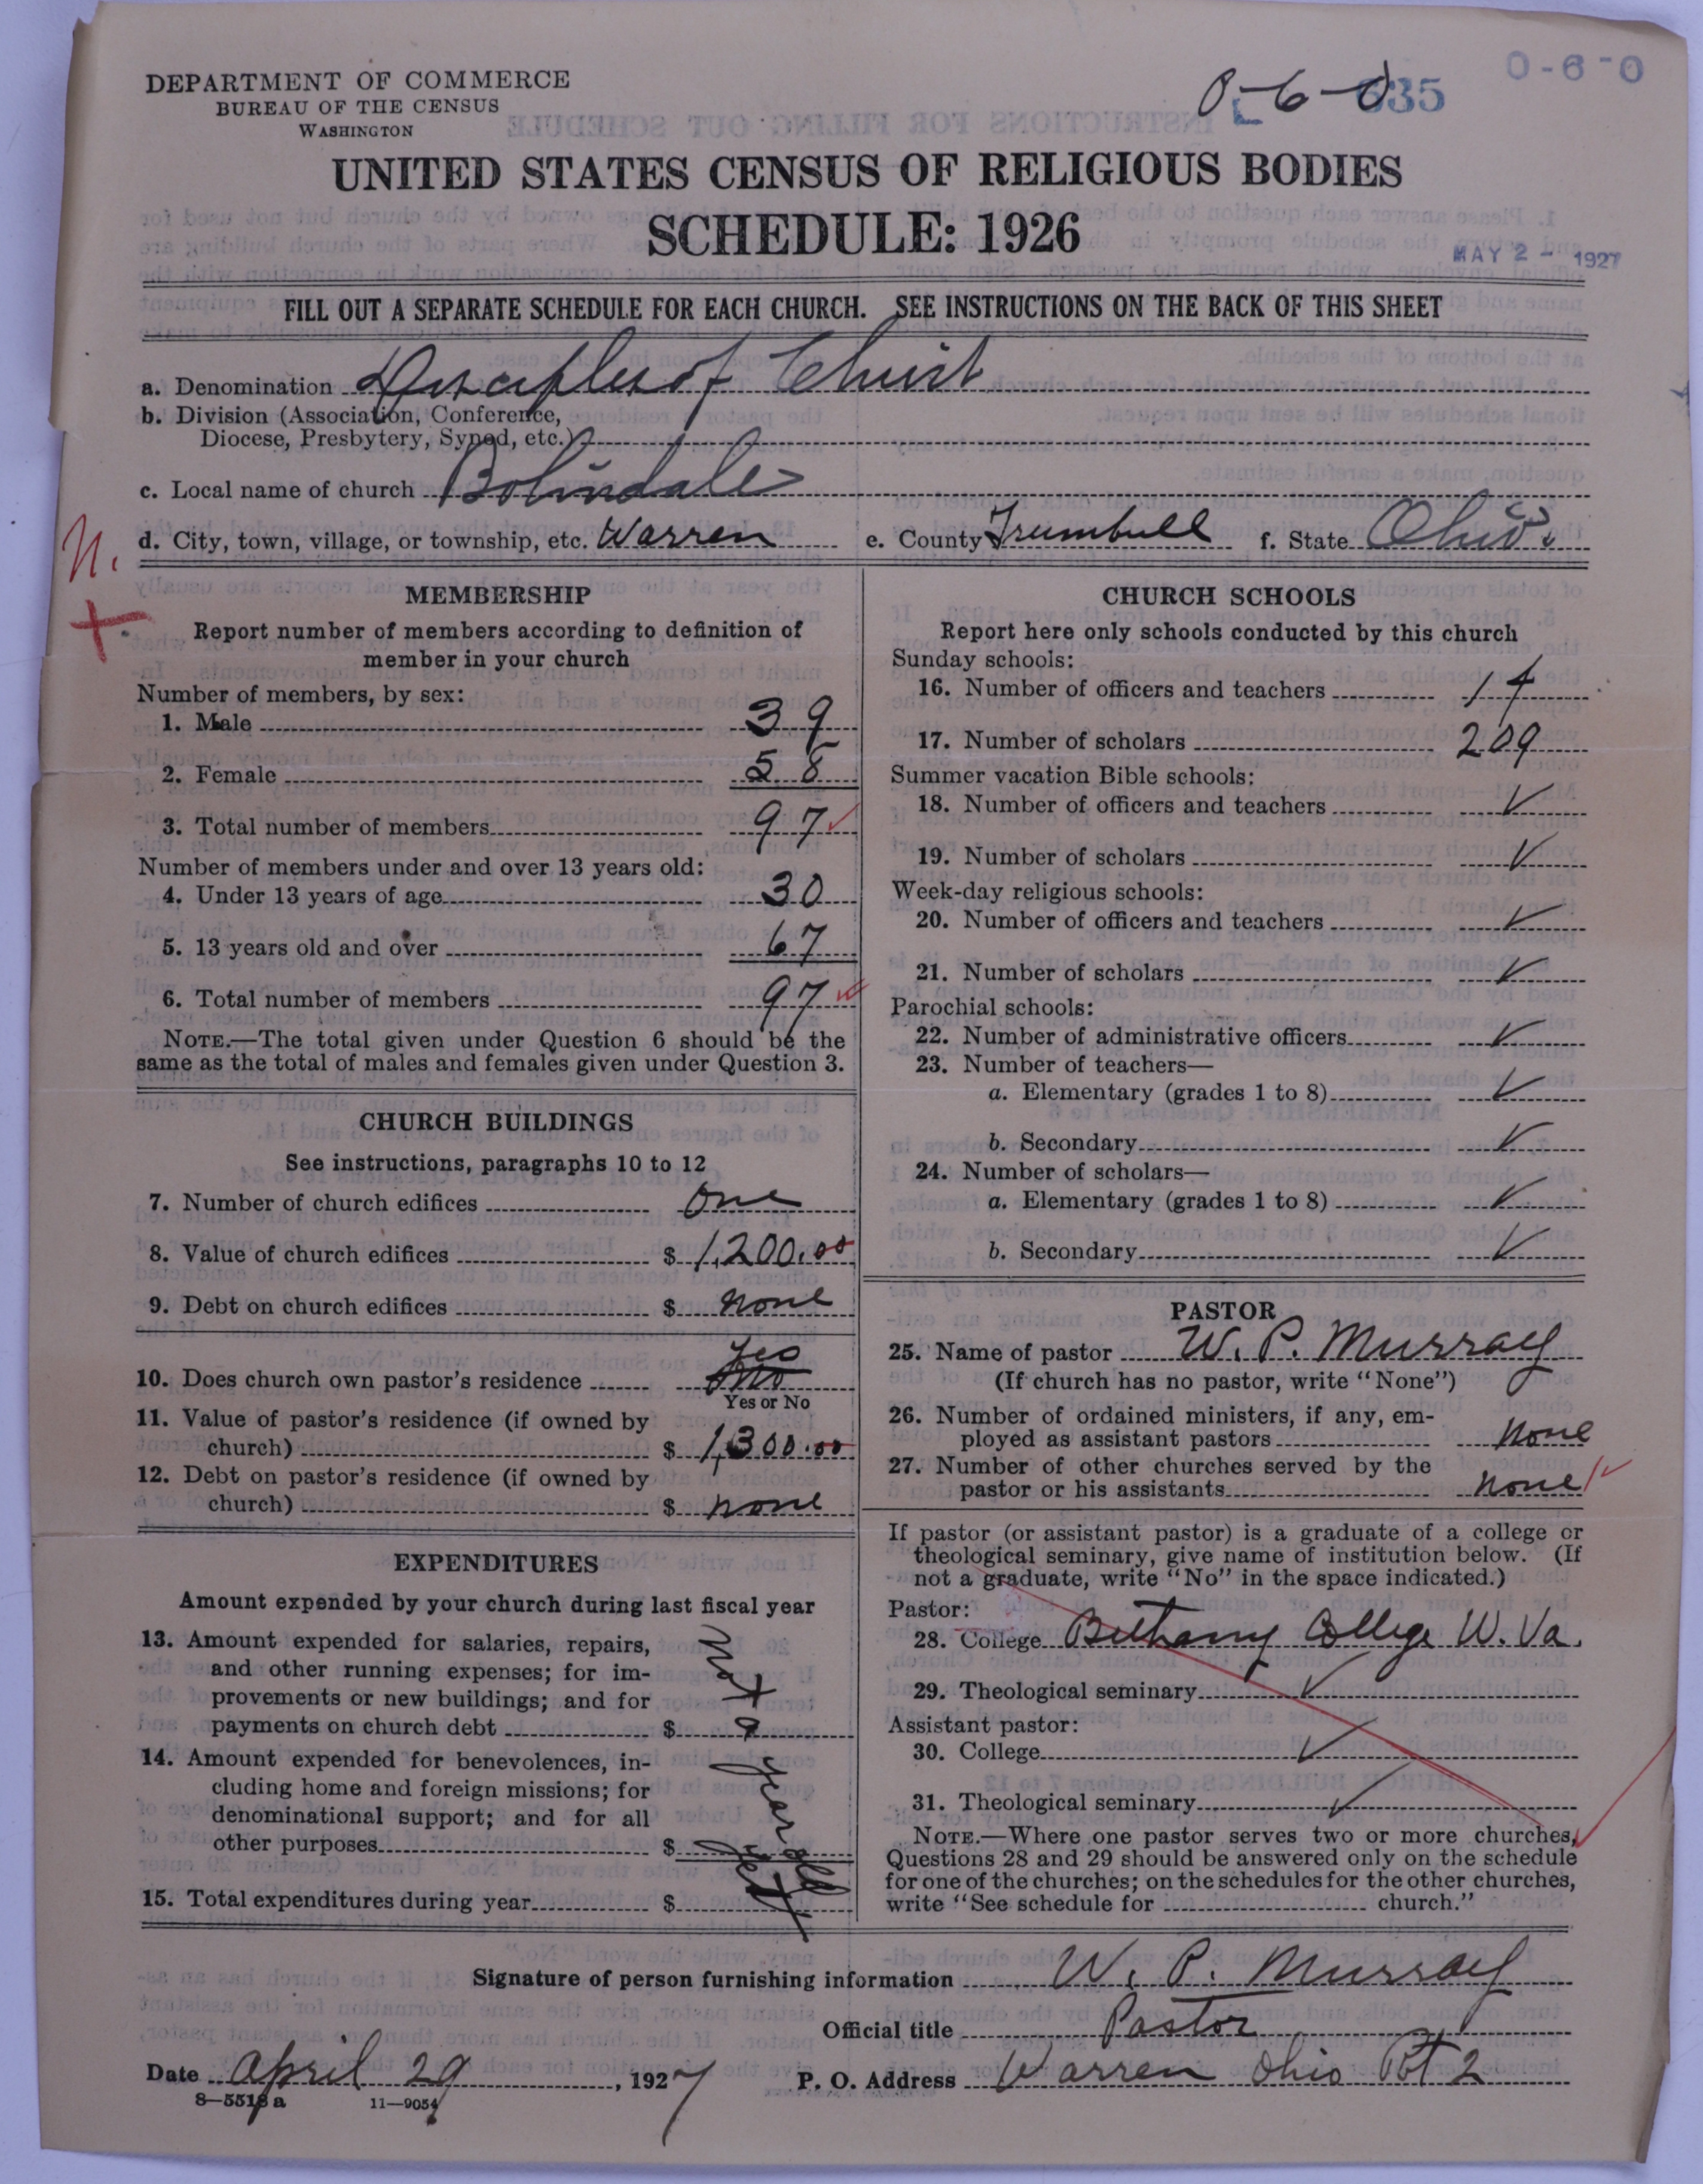 DEPARTMENT OF COMMERCE
BUREAU OF THE CENSUS
WASHINGTON
0-6-0
635
0-6-0
UNITED STATES CENSUS OF RELIGIOUS BODIES
SCHEDULE: 1926
MAY 2 - 1927
FILL OUT A SEPARATE SCHEDULE FOR EACH CHURCH. SEE INSTRUCTIONS ON THE BACK OF THIS SHEET
a. Denomination Disciples of Christ
b. Division (Association, Conference,
Diocese, Presbytery, Synod, etc.)
c. Local name of church Bolindale
d. City, town, village, or township, etc. Warren e. County Trumbull f. State Ohio.
N.
+
MEMBERSHIP
Report number of members according to definition of
member in your church
Number of members, by sex:
1. Male 39
2. Female 58
3. Total number of members 97 ✓
Number of members under and over 13 years old:
4. Under 13 years of age 30
5. 13 years old and over 67
6. Total number of members 97 ✓
NOTE.—The total given under Question 6 should be the
same as the total of males and females given under Question 3.
CHURCH BUILDINGS
See instructions, paragraphs 10 to 12
7. Number of church edifices one
8. Value of church edifices $ 1,200.00
9. Debt on church edifices $ none
10. Does church own pastor's residence Yes
Yes or No
11. Value of pastor's residence (if owned by
church) $ 1,300.00
12. Debt on pastor's residence (if owned by
church) $ none
EXPENDITURES
Amount expended by your church during last fiscal year
13. Amount expended for salaries, repairs,
and other running expenses; for im-
provements or new buildings; and for
payments on church debt $
14. Amount expended for benevolences, in-
cluding home and foreign missions; for
denominational support; and for all
other purposes $
15. Total expenditures during year $
Not a year old yet
CHURCH SCHOOLS
Report here only schools conducted by this church
Sunday schools:
16. Number of officers and teachers 14
17. Number of scholars 209
Summer vacation Bible schools:
18. Number of officers and teachers ✓
19. Number of scholars ✓
Week-day religious schools:
20. Number of officers and teachers ✓
21. Number of scholars ✓
Parochial schools:
22. Number of administrative officers ✓
23. Number of teachers—
a. Elementary (grades 1 to 8) ✓
b. Secondary ✓
24. Number of scholars—
a. Elementary (grades 1 to 8) ✓
b. Secondary ✓
PASTOR
25. Name of pastor W. P. Murray
(If church has no pastor, write "None")
26. Number of ordained ministers, if any, em-
ployed as assistant pastors None
27. Number of other churches served by the
pastor or his assistants none ✓
If pastor (or assistant pastor) is a graduate of a college or
theological seminary, give name of institution below. (If
not a graduate, write "No" in the space indicated.)
Pastor:
28. College Bethany College W. Va.
29. Theological seminary ✓
Assistant pastor:
30. College ✓
31. Theological seminary ✓
NOTE.—Where one pastor serves two or more churches,
Questions 28 and 29 should be answered only on the schedule
for one of the churches; on the schedules for the other churches,
write "See schedule for church."
Signature of person furnishing information W. P. Murray
Official title Pastor
Date April 29, 1927 P. O. Address Warren Ohio Rt 2
8—5518 a 11—9054